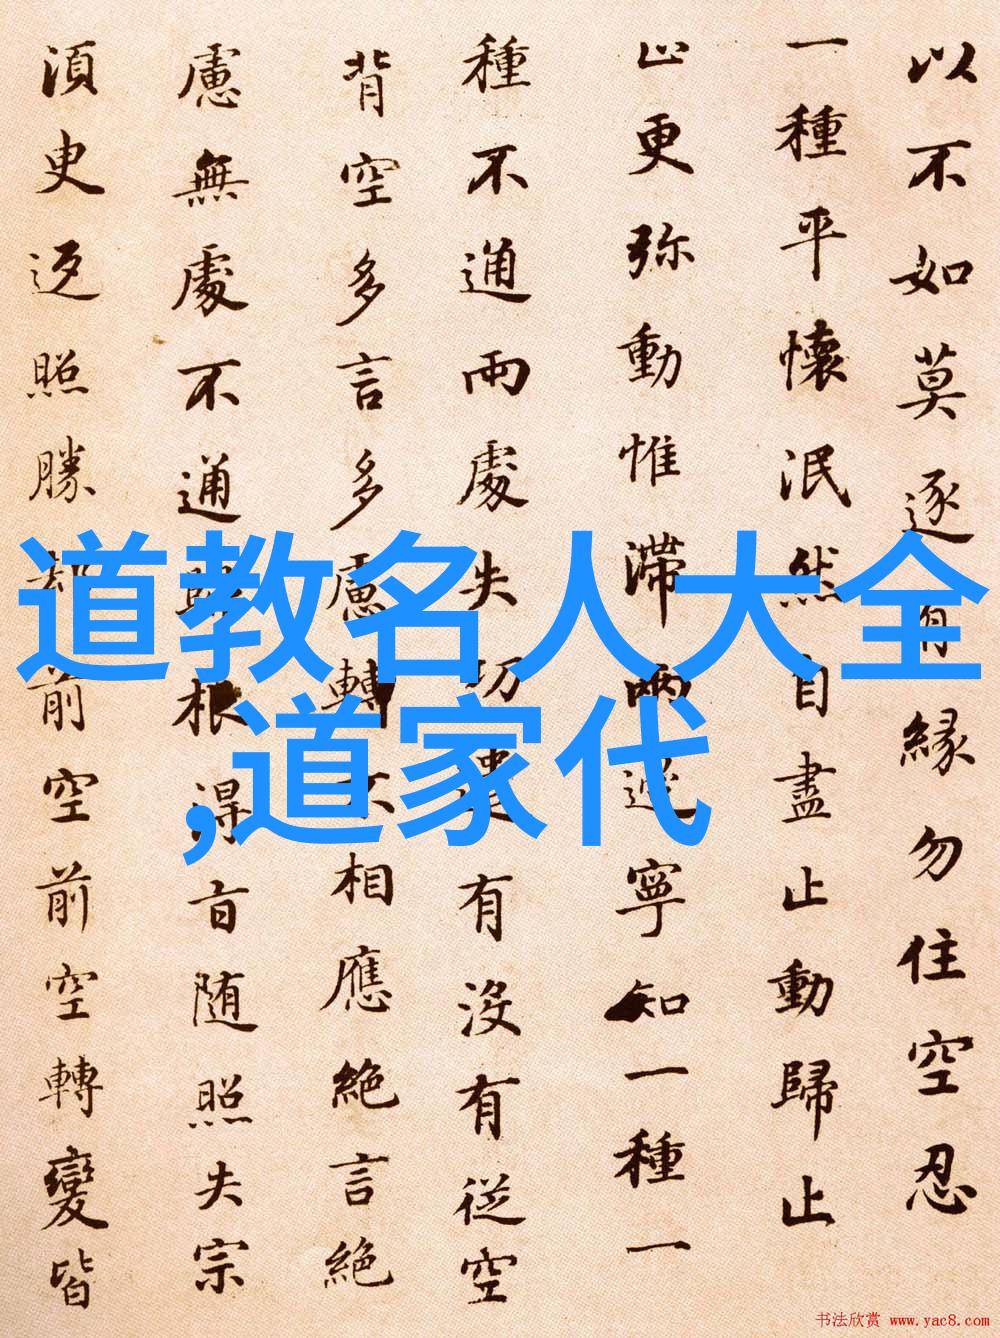 道教名人大全
,道家代
以不如莫逐有緣勿住空忍
一種平懷泯然自盡止動歸止
止更弥動惟滞兩邊寧知一種一
種不通兩處失功遣有沒有従空
背空多言多慮轉不相應絶言絶
慮無處不通歸根得旨随照失宗
須臾返照勝却前空前空轉變皆
书法欣赏 www.yac8.com